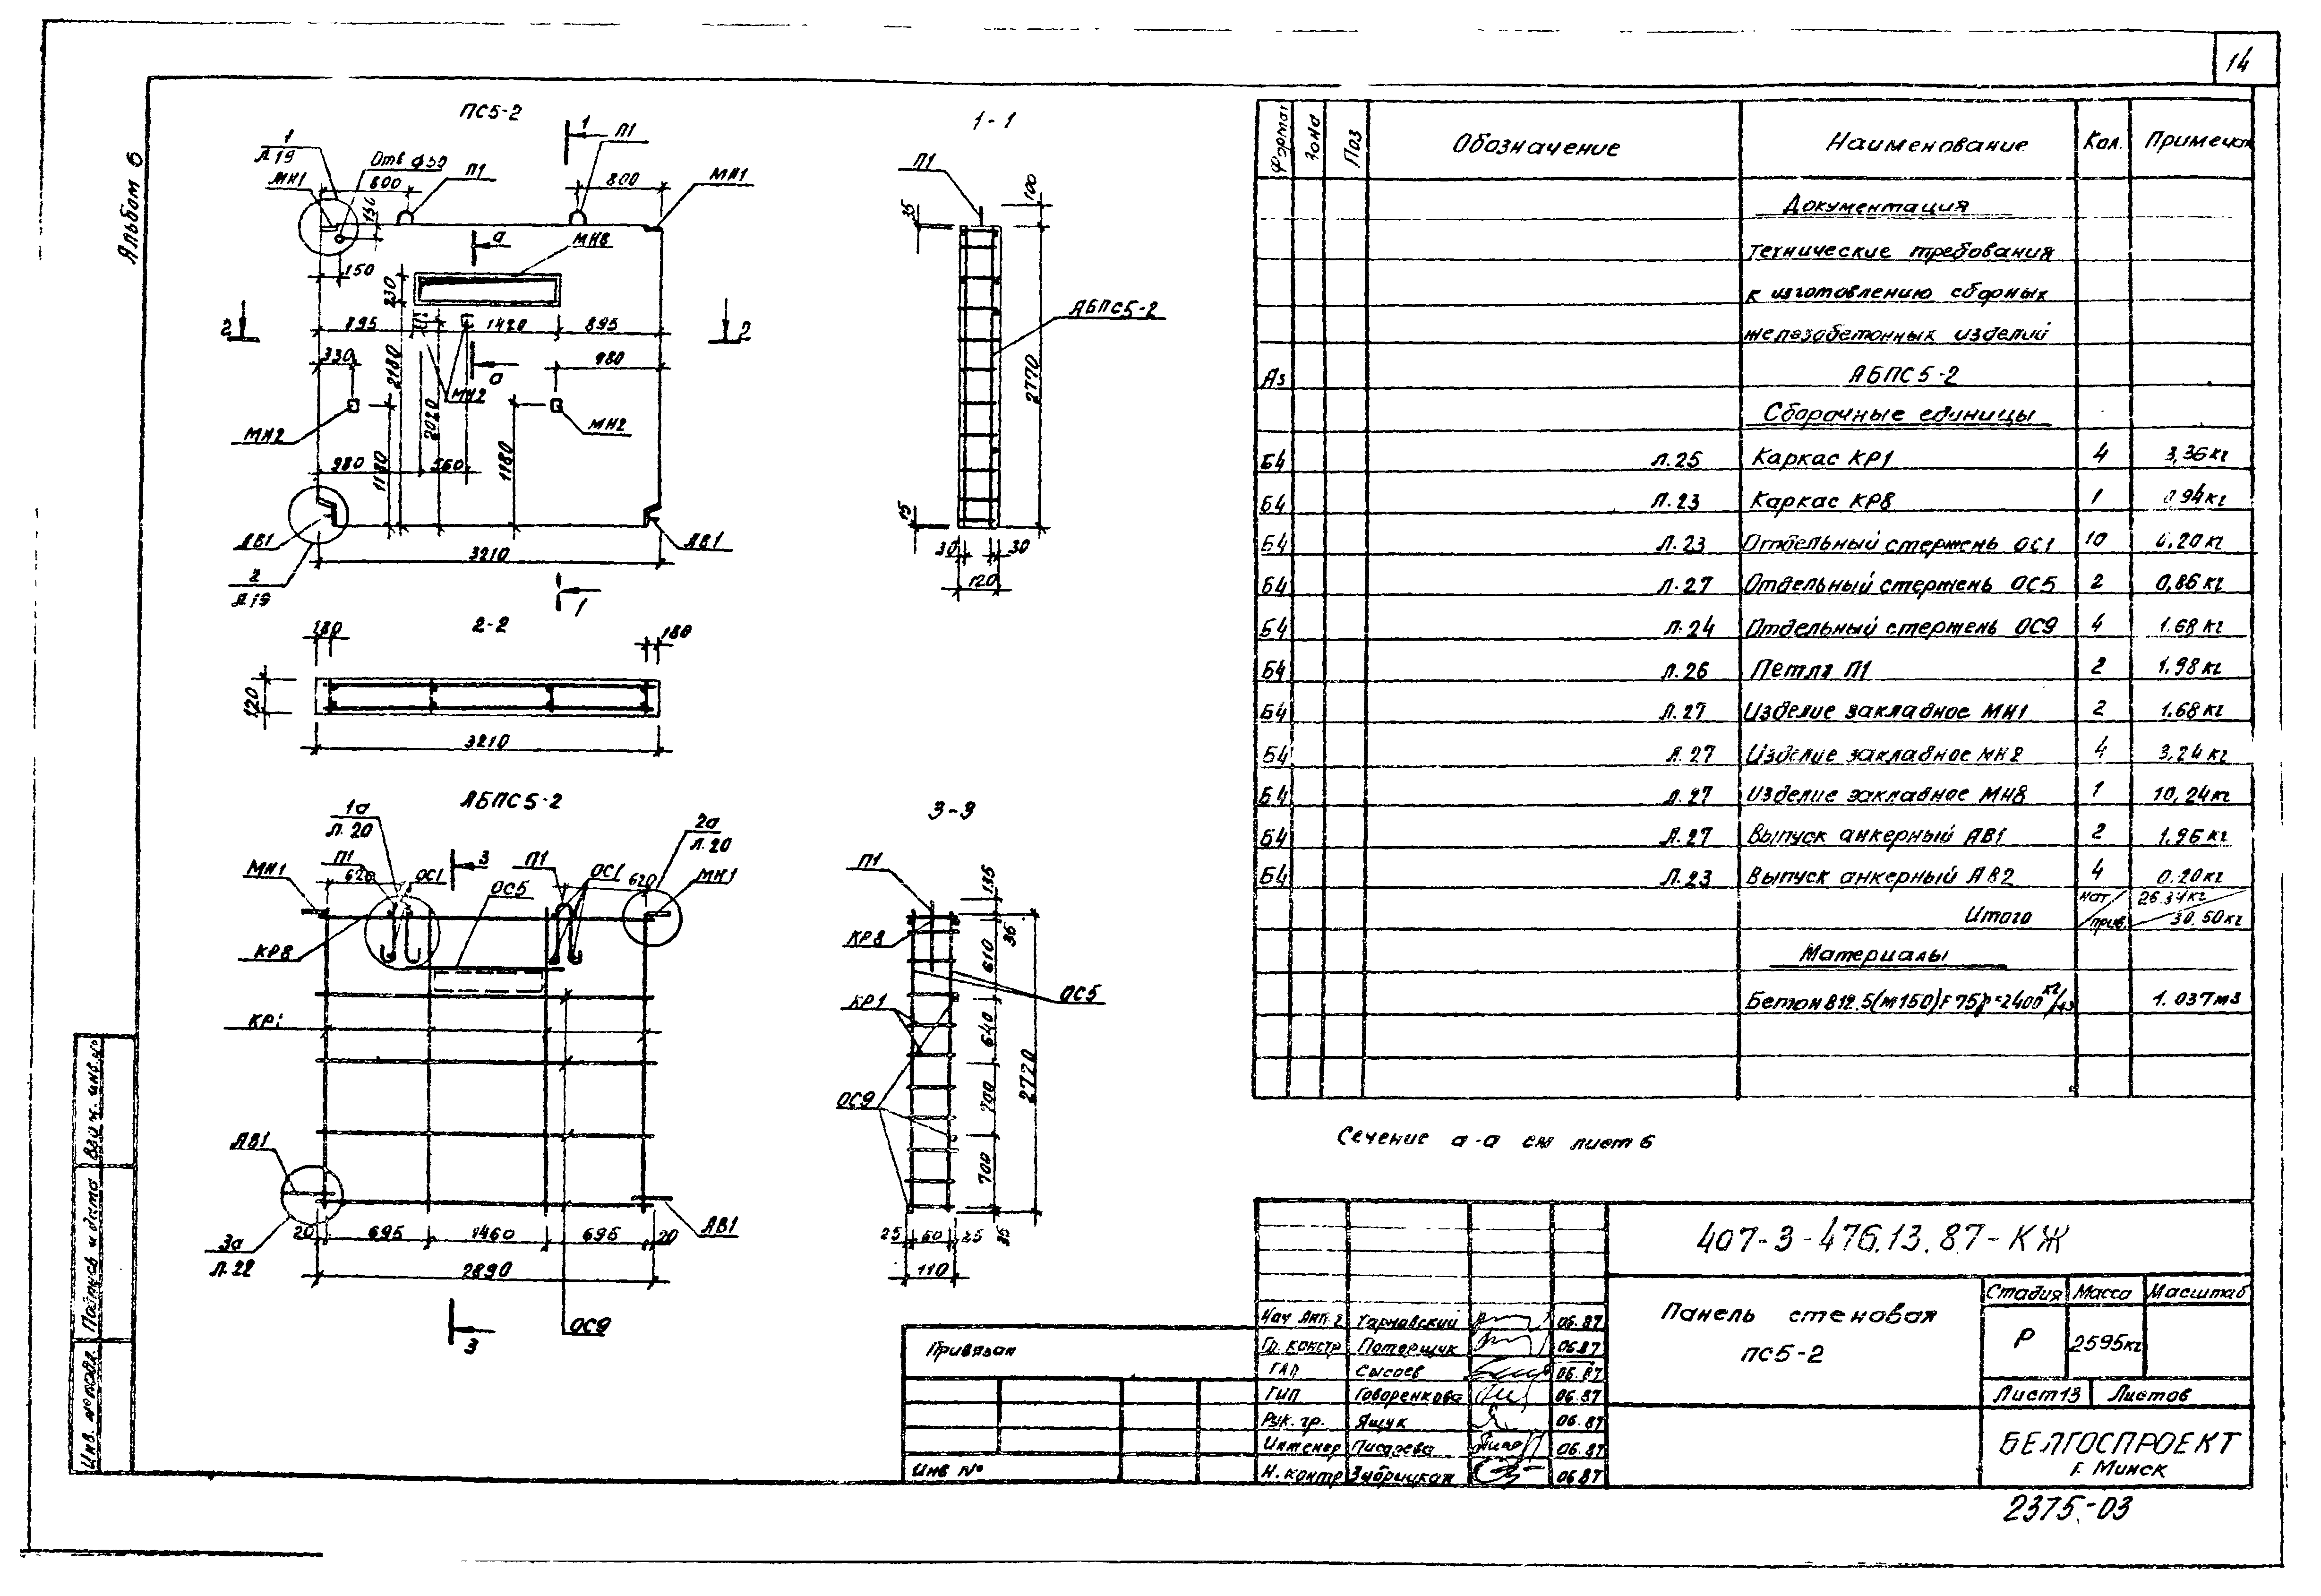 14
Альбом 6
ПС5-2
1
Л.19
Отв ф50
МН1
800
П1
1
П1
800
МН1
150
а
МН8
230
2
895
1420
895
2
330
2180
а
980
МН2
2020
МН2
МН2
980
560
1180
1180
АВ1
3210
АВ1
2
Л19
1
1-1
П1
35
100
АБПС5-2
2770
15
30
30
120
2-2
180
180
120
3210
АБПС5-2
1а
Л.20
2а
Л.20
МН1
П1
620
ОС1
3
ОС5
П1
ОС1
620
МН1
КР8
КР1
АВ1
АВ1
20
695
1460
695
20
3а
Л.22
2890
ОС9
3
3-3
П1
135
КР8
610
36
КР1
ОС5
640
ОС9
700
2720
700
25
60
25
35
110
Формат
Зона
Поз
Обозначение
Наименование
Кол.
Примечан
Документация
технические требования
к изготовлению сборных
железобетонных изделий
А3 АБПС5-2
Сборочные единицы
Б4 Л.25 Каркас КР1 4 3,36кг
Б4 Л.23 Каркас КР8 1 0,94кг
Б4 Л.23 Отдельный стержень ОС1 10 0,20кг
Б4 Л.27 Отдельный стержень ОС5 2 0,86кг
Б4 Л.24 Отдельный стержень ОС9 4 1.68кг
Б4 Л.26 Петля П1 2 1.98кг
Б4 Л.27 Изделие закладное МН1 2 1.68кг
Б4 Л.27 Изделие закладное МН2 4 3,24кг
Б4 Л.27 Изделие закладное МН8 1 10,24кг
Б4 Л.27 Выпуск анкерный АВ1 2 1.96кг
Б4 Л.23 Выпуск анкерный АВ2 4 0.20кг
Итого нат/прив. 26.34кг/30.50кг
Материалы
Бетон В12.5(М150)F75ρ=2400кг/м3 1.037м3
Сечение а-а см лист 6
407-3-476.13.87-КЖ
Панель стеновая
ПС5-2
Стадия Масса Масштаб
Р 2595кг
Лист 13 Листов
БЕЛГОСПРОЕКТ
г. Минск
Нач АПК-2 Тарнавский 06.87
Гл. констр Потерщук 06.87
ГАП Сысоев 06.87
ГИП Говоренкова 06.87
Рук. гр. Ящук 06.87
Инженер Писарева 06.87
Н. контр Зубрицкая 06.87
Привязан
Инв №
Инв. № подл. Подпись и дата Взам. инв. №
2375-03